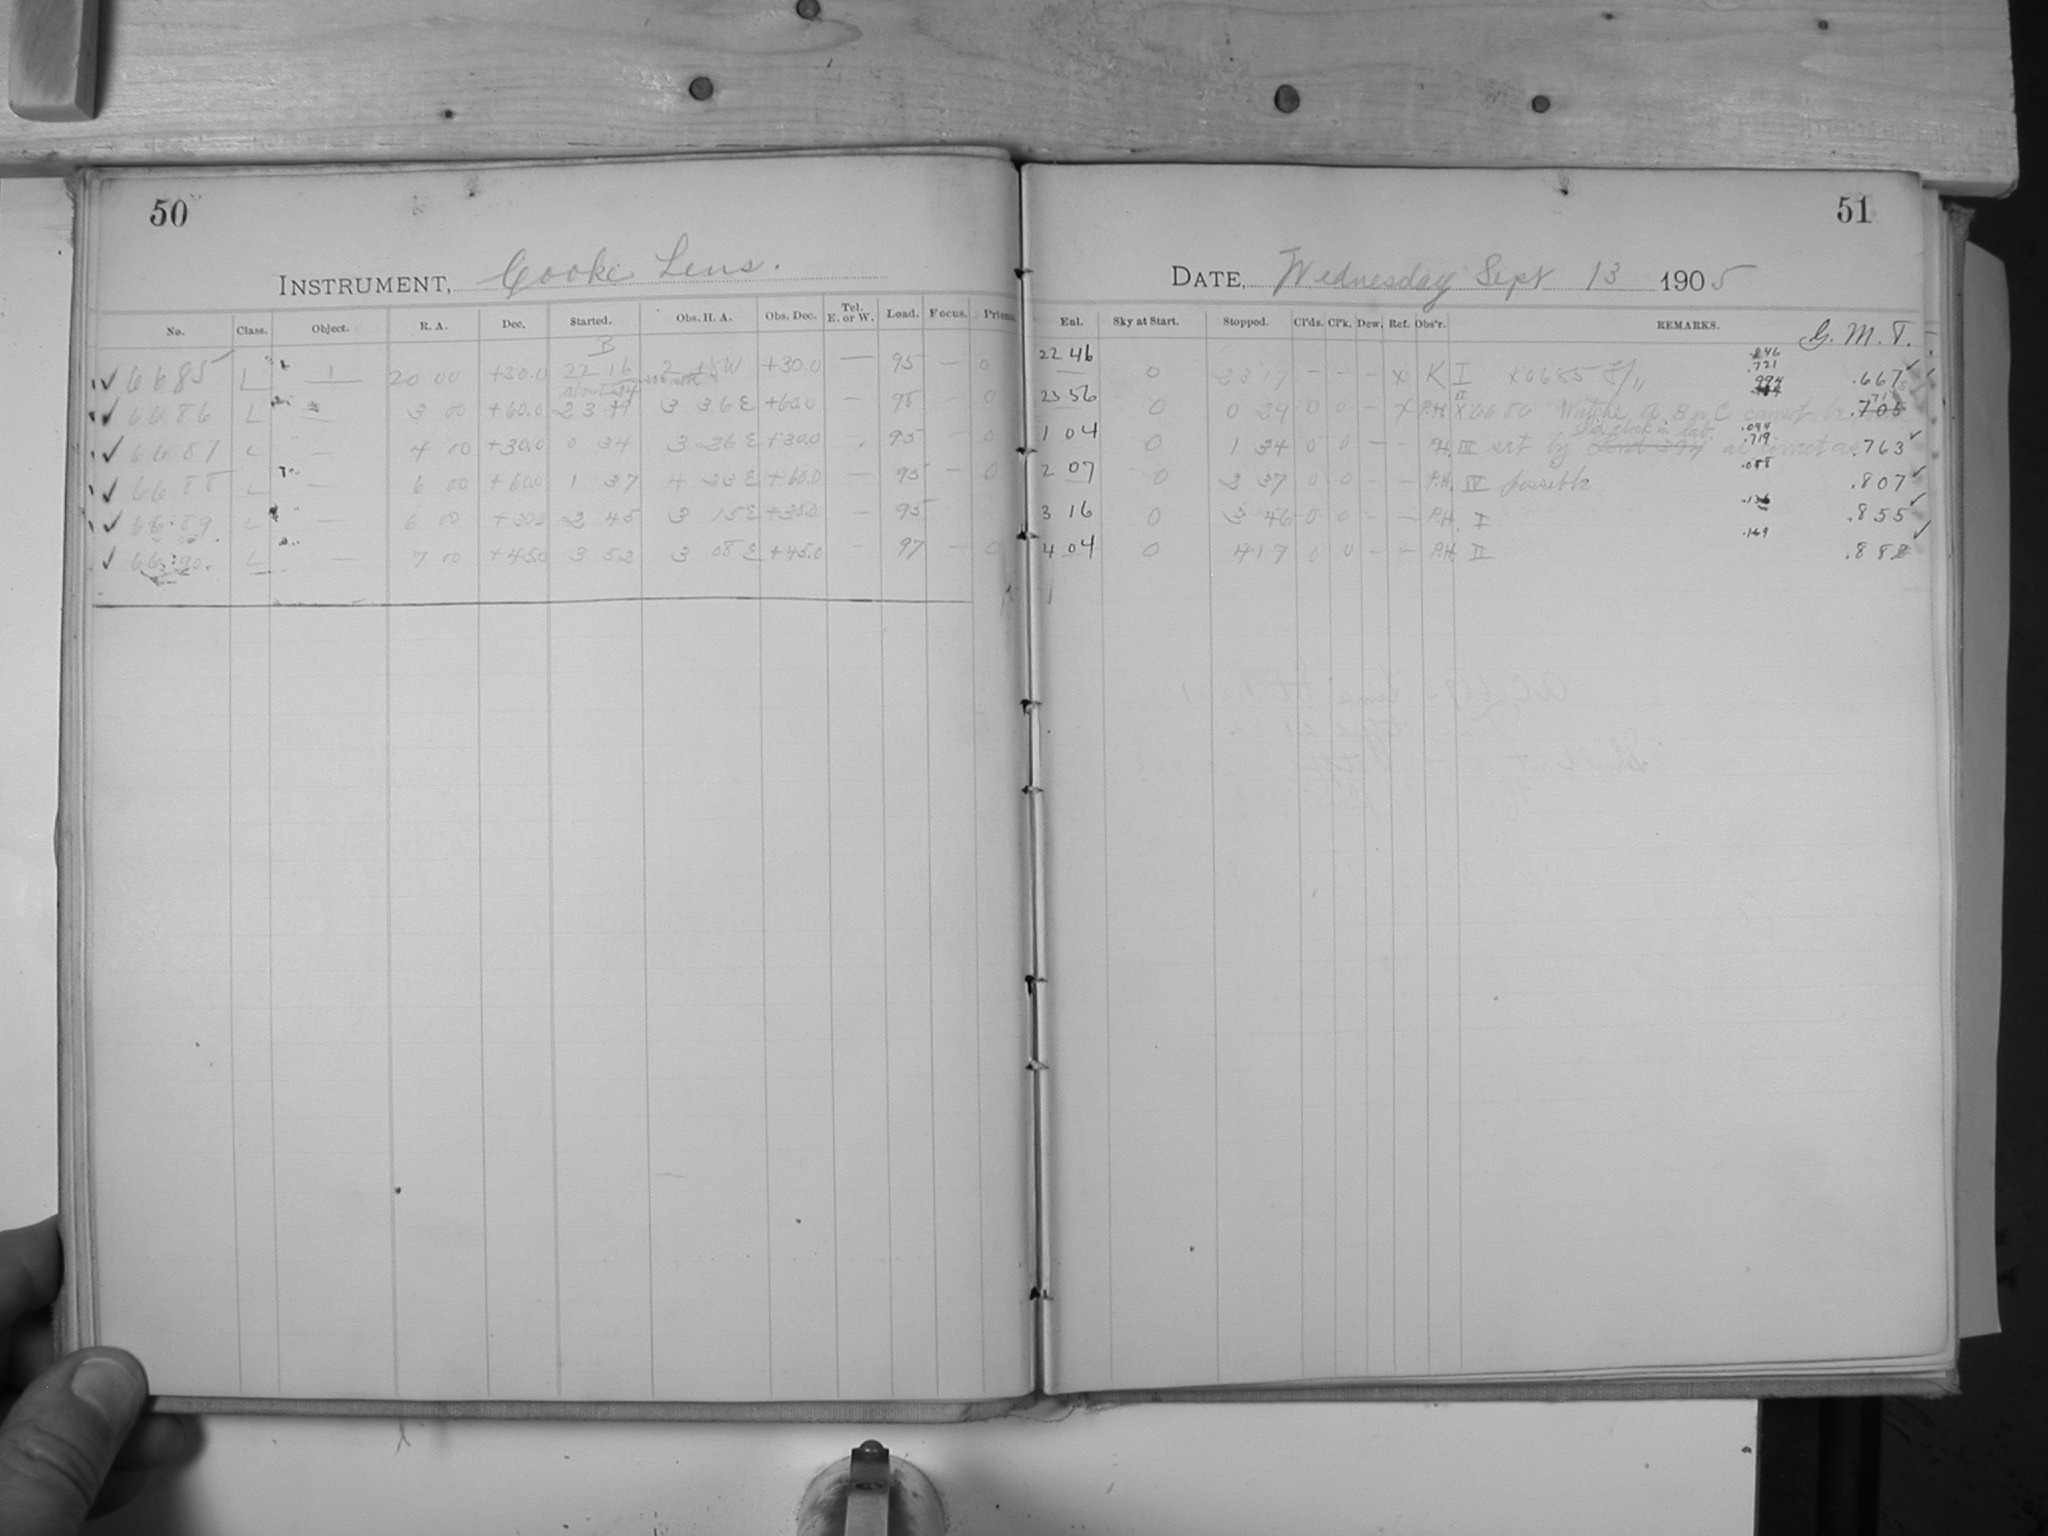 50
INSTRUMENT, Cooke Lens.
No. Class. Object. R. A. Dec. Started. Obs. H. A. Obs. Dec. Tel. E. or W. Load. Focus. Prisms.
B
✓ 6685 L 1 20 00 +30.0 22 16 2 18W +30.0 — 95 — 0
about
✓ 6686 L — 3 00 +60.0 23 3 36E +60.0 — 98 — 0
✓ 6687 L — 4 00 +30.0 0 34 3 36E +30.0 95 — 0
✓ 6688 L — 6 00 +60.0 1 37 4 33E +60.0 — 95 — 0
✓ 6689 L — 6 00 +30.0 2 45 3 15E +30.0 — 95
✓ 6690 L — 7 00 +45.0 3 52 3 08E +45.0 — 97 — 0
51
DATE, Wednesday Sept 13 1905
Exl. Sky at Start. Stopped. Cl'ds. Cl'k. Dew. Ref. Obs'r. REMARKS. G. M. T.
22 46 0 23 17 – – – x K I x6685 .721 .667 ✓
23 56 0 0 29 0 0 – x P.H. II x6686 Watche a, B or C cannot be .994 .705
Sid clock in lab.
1 04 0 1 34 0 0 – – P.H. III set by .044 .719 .763 ✓
2 07 0 2 37 0 0 – – P.H. IV possible .088 .807 ✓
3 16 0 3 46 0 0 – – P.H. I .136 .855 ✓
4 04 0 4 17 0 0 – – P.H. II .169 .888 ✓